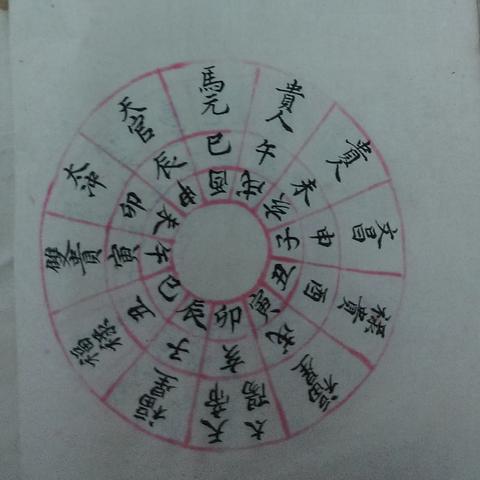 馬元
貴人
貴人
文昌
祿貴
太陽
天帝
福祿
雙貴
太沖
天官
巳
午
未
申
酉
戌
亥
子
丑
寅
卯
辰
酉
戌
亥
子
丑
寅
卯
辰
巳
午
未
申